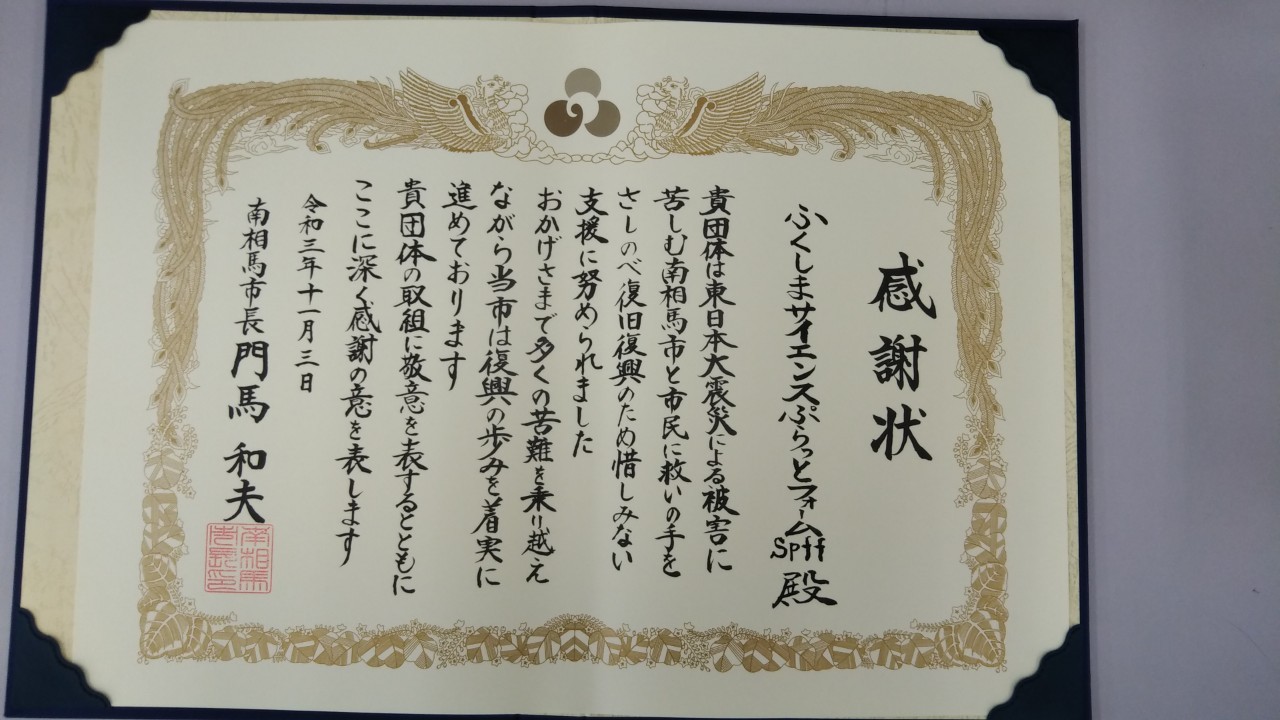 感謝状
ふくしまサイエンスぷらっとフォームSpff 殿
貴団体は東日本大震災による被害に
苦しむ南相馬市と市民に救いの手を
さしのべ復旧復興のため惜しみない
支援に努められました
おかげさまで多くの苦難を乗り越え
ながら当市は復興の歩みを着実に
進めております
貴団体の取組に敬意を表するとともに
ここに深く感謝の意を表します
令和三年十一月三日
南相馬市長 門馬 和夫